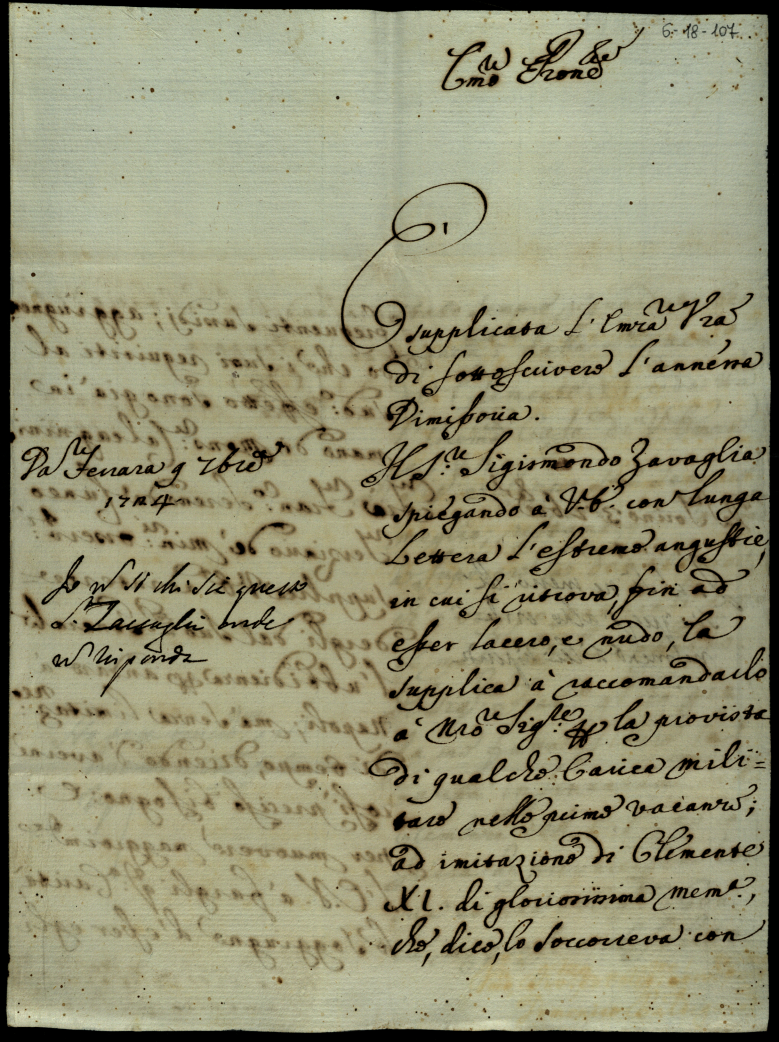 6-18-107
Em̃o e Rend.
È
supplicata l'Emza Vrã
di sottoscrivere l'annessa
Dimissoria.
Il S.r Sigismondo Zavaglia
spiegando à V.E. con lunga
Lettera l'estreme angustie,
in cui si ritrova, fin ad
esser lacero, e nudo, la
supplica à raccomandarlo
à Nrõ Sig.re per la provista
di qualche Carica mili=
tare nelle prime vacanze;
ad imitazione di Clemente
XI. di gloriosissima mem.a,
che, dice, lo soccorreva con
Da Ferrara 9 7bre
1724
Io non sò chi sia questo
S. Zavaglia onde
non risponda